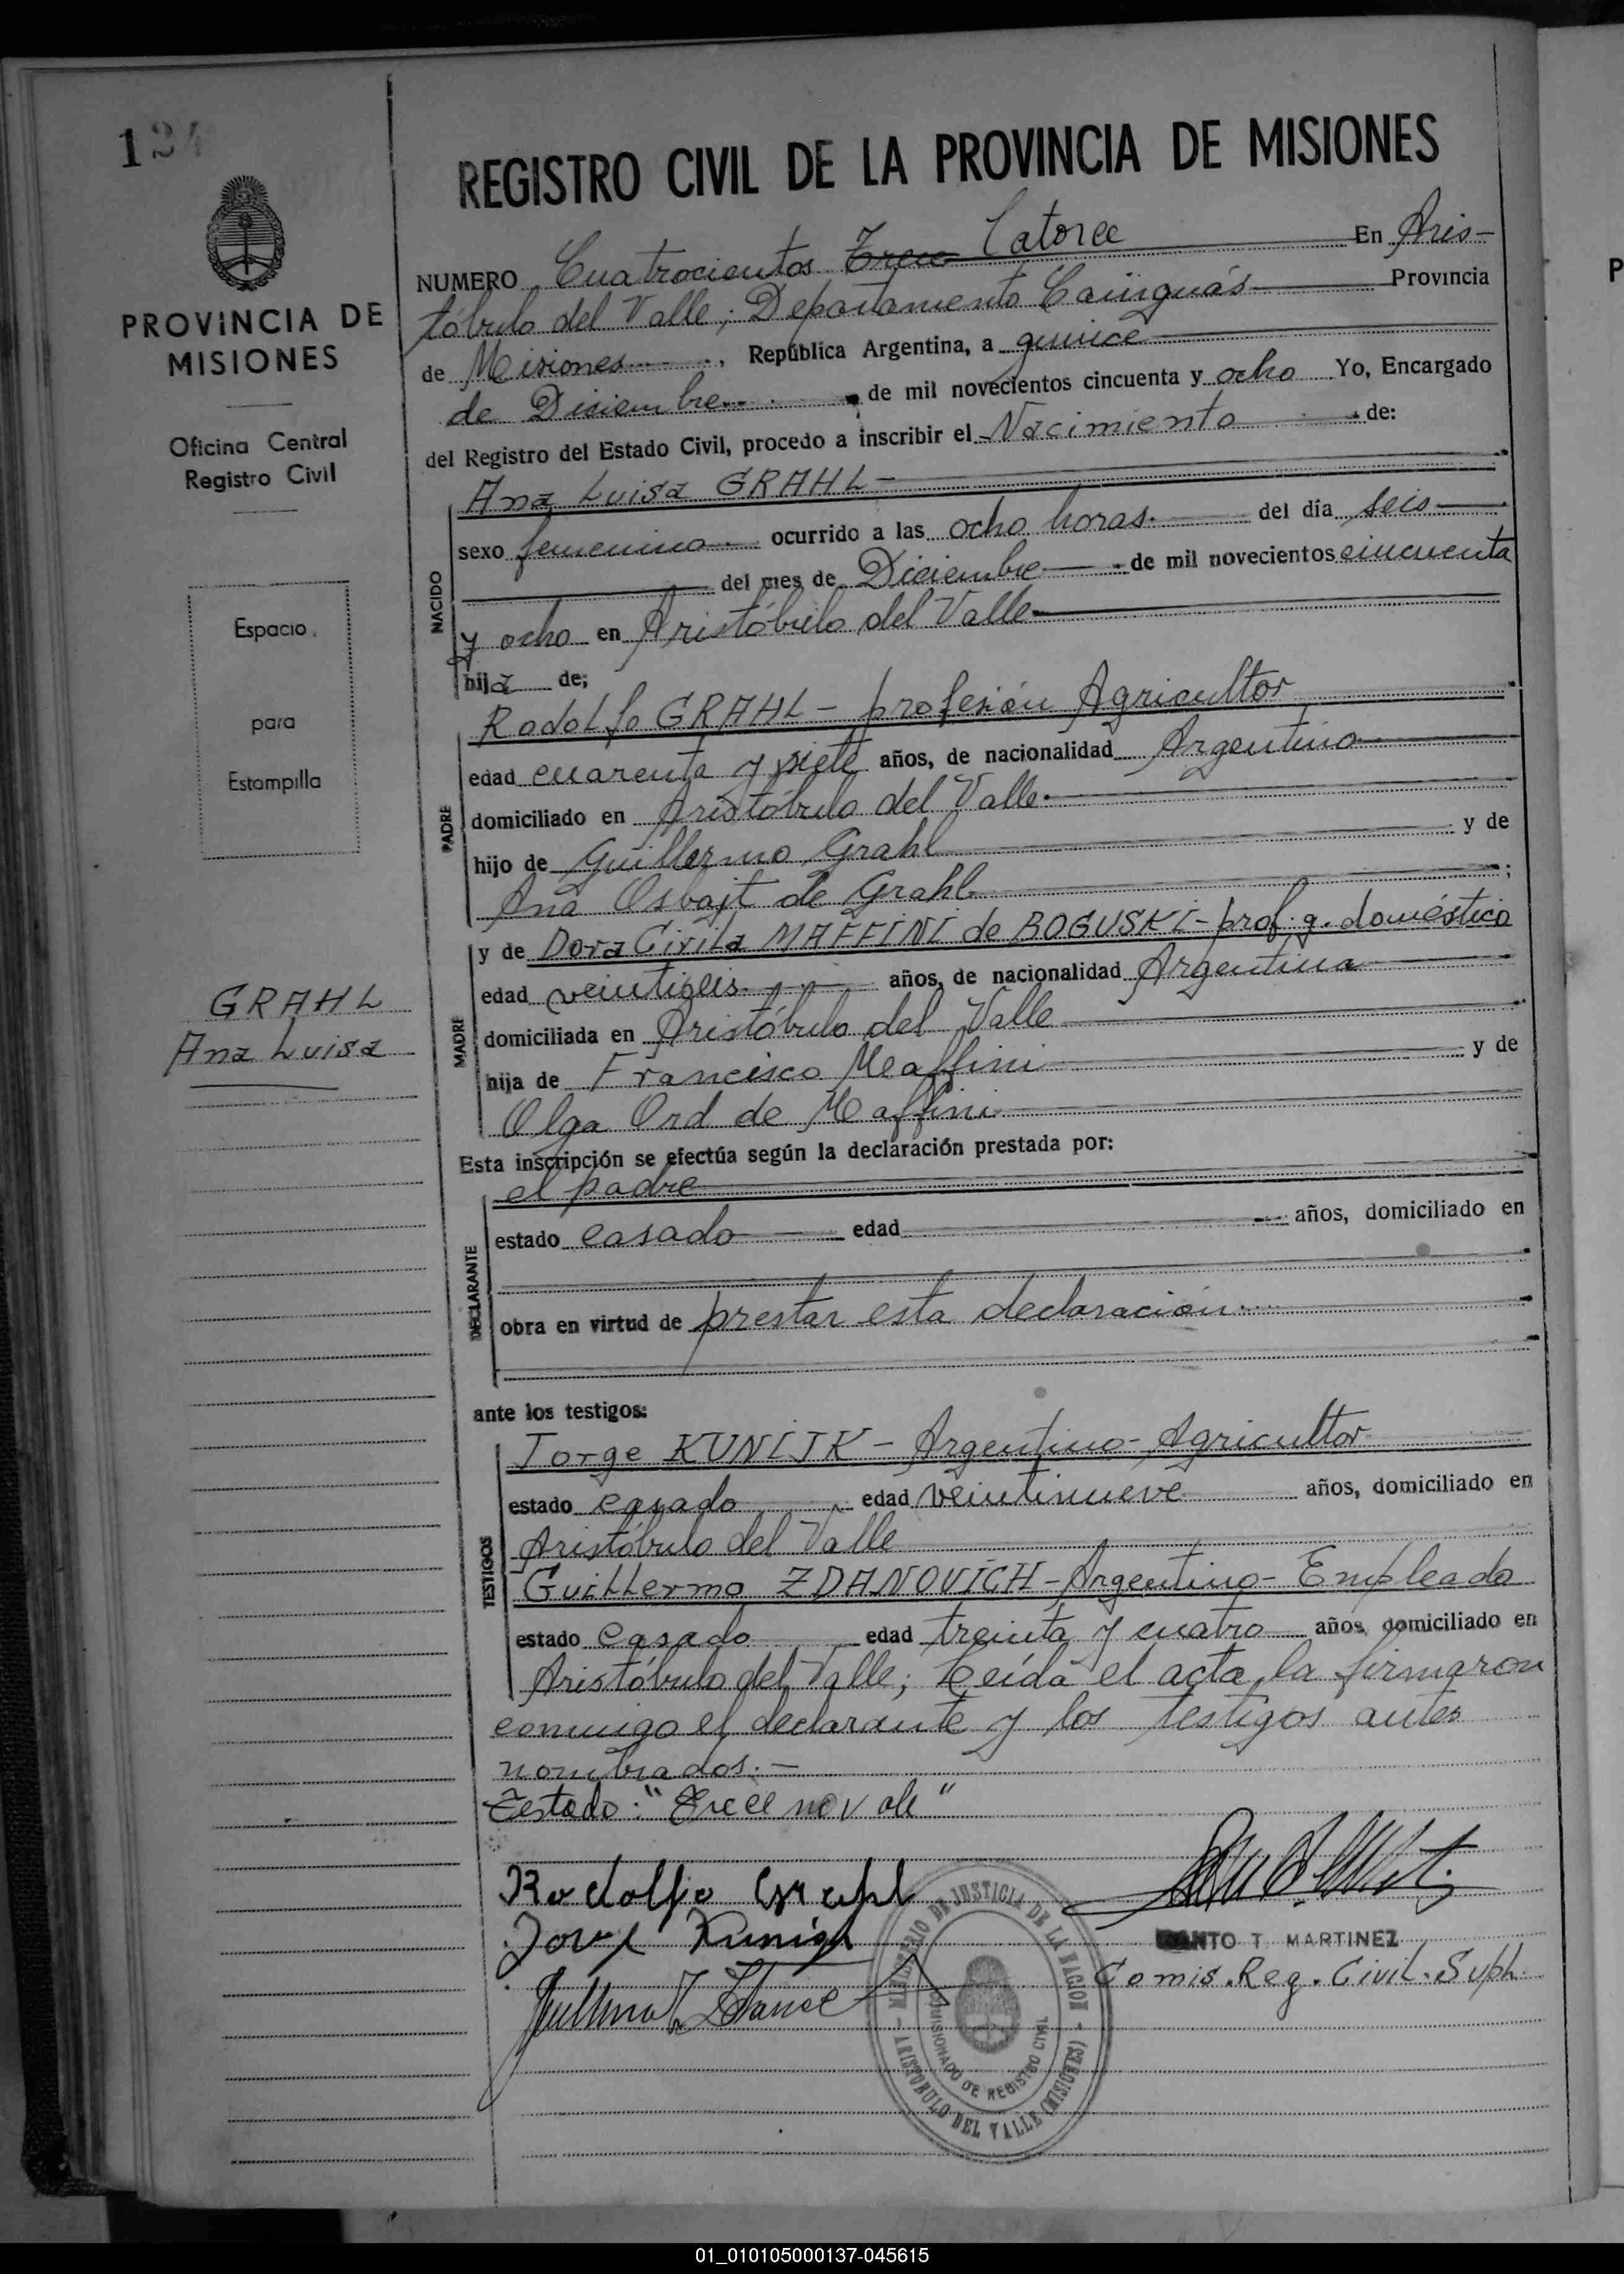 124
REGISTRO CIVIL DE LA PROVINCIA DE MISIONES
PROVINCIA DE
MISIONES
Oficina Central
Registro Civil
Espacio
para
Estampilla
GRAHL
Ana Luisa
NUMERO Cuatrocientos Trece Catorce En Aris-
tóbulo del Valle; Departamento Cainguás Provincia
de Misiones, República Argentina, a quince
de Diciembre de mil novecientos cincuenta y ocho Yo, Encargado
del Registro del Estado Civil, procedo a inscribir el Nacimiento de:
NACIDO
Ana Luisa GRAHL-
sexo femenino ocurrido a las ocho horas. del día seis
del mes de Diciembre de mil novecientos cincuenta
y ocho en Aristóbulo del Valle
hija de;
PADRE
Rodolfo GRAHL - profesión Agricultor
edad cuarenta y siete años, de nacionalidad Argentino
domiciliado en Aristóbulo del Valle
hijo de Guillermo Grahl y de
Ana Osbajt de Grahl ;
MADRE
y de Dora Cirila MAFFINI de BOGUSKI - prof. q. doméstico
edad veintiseis años, de nacionalidad Argentina
domiciliada en Aristóbulo del Valle
hija de Francisco Maffini y de
Olga Ord de Maffini
Esta inscripción se efectúa según la declaración prestada por:
DECLARANTE
el padre
estado casado edad años, domiciliado en
obra en virtud de prestar esta declaración
ante los testigos:
TESTIGOS
Jorge KUNIJK - Argentino - Agricultor
estado casado edad veintinueve años, domiciliado en
Aristóbulo del Valle
Guillermo ZDANOVICH - Argentino - Empleado
estado casado edad treinta y cuatro años, domiciliado en
Aristóbulo del Valle; Leída el acta, la firmaron
conmigo el declarante y los testigos antes
nombrados.-
Testado: "Trece no vale"
Rodolfo Grahl
MINISTERIO DE JUSTICIA DE LA NACION
COMISIONADO DE REGISTRO CIVIL
ARISTOBULO DEL VALLE (MISIONES)
SANTO T. MARTINEZ
Comis. Reg. Civil. Suph.
P
01_010105000137-045615